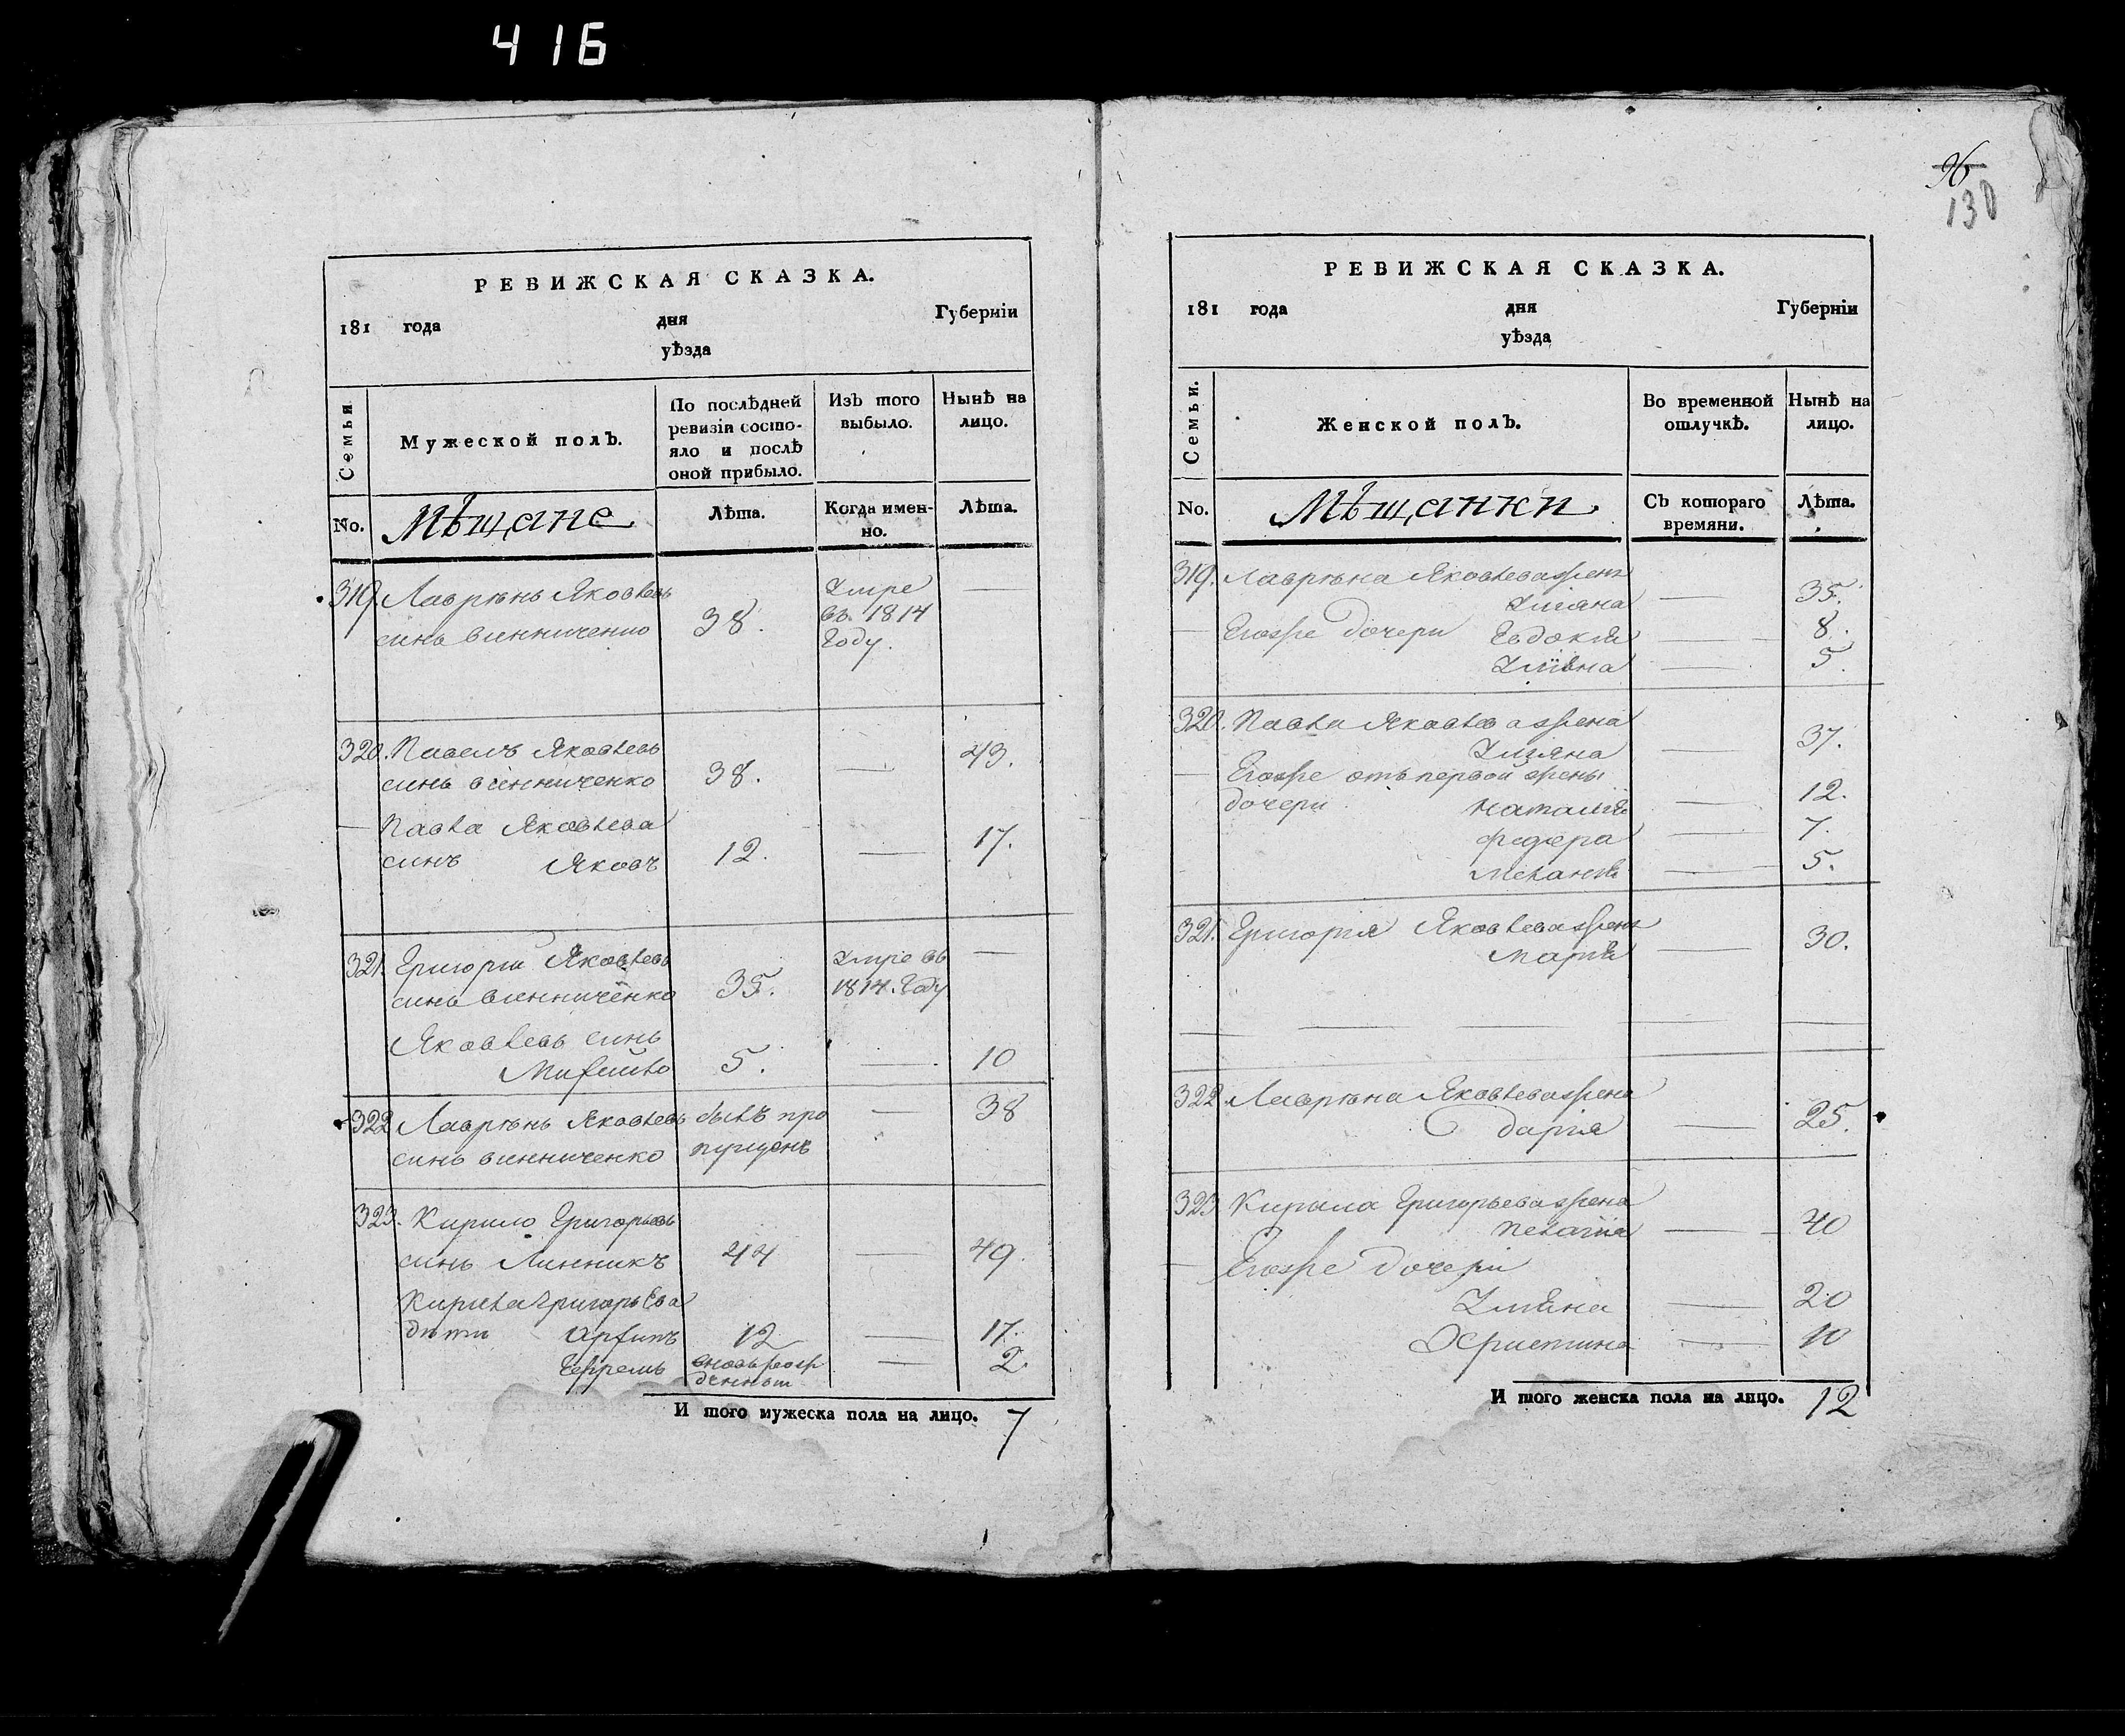 416
96
130
РЕВИЖСКАЯ СКАЗКА.
181 года дня Губерніи
уѣзда
Семьи
Мужеской полъ.
По послѣдней ревизіи состо-
яло и послѣ
оной прибыло.
Изъ того
выбыло.
Нынѣ на
лицо.
No.
Мѣщане
Лѣта.
Когда имен-
но.
Лѣта.
319. Лаврѣнъ Яковлевъ
синъ Винниченко 38.
Умре
въ 1814
Году. —
320. Павелъ Яковлевъ
синъ винниченко 38. — 43.
— Павла Яковлева
синъ Яковъ 12. — 17.
321. Григорій Яковлевъ
синъ Винниченко 35.
Умре въ
1814. Году —
Яковлевъ синъ
5. — 10
322 Лаврѣнъ Яковлевъ былъ про
синъ винниченко пущенъ — 38
323. Кирило Григорьевъ
синъ Линникъ 44 — 49.
Кирила Григорьева
дѣти Архипъ 12 — 17.
Ефремъ вновь рож
денный — 2.
И того мужеска пола на лицо. 7
РЕВИЖСКАЯ СКАЗКА.
181 года дня Губерніи
уѣзда
Семьи.
Женской полъ.
Во временной
отлучкѣ.
Нынѣ на
лицо.
No.
Мѣщанки
Съ котораго
времяни.
Лѣта.
319. Лаврѣна Яковлева жена
Уляна — 35.
— Егоже дочери Евдокія — 8.
— 5.
320. Павла Яковлева жена
Уляна — 37.
— Егоже отъ первой жены
дочери Наталія — 12.
Федора — 7.
Меланія — 5.
321. Григорія Яковлева жена
Марія — 30.
322 Лаврѣна Яковлева жена
Дарія — 25.
323. Кирила Григорьева жена
Пелагія — 40
— Егоже дочери
Уляна — 20
Христина — 10
И того женска пола на лицо. 12